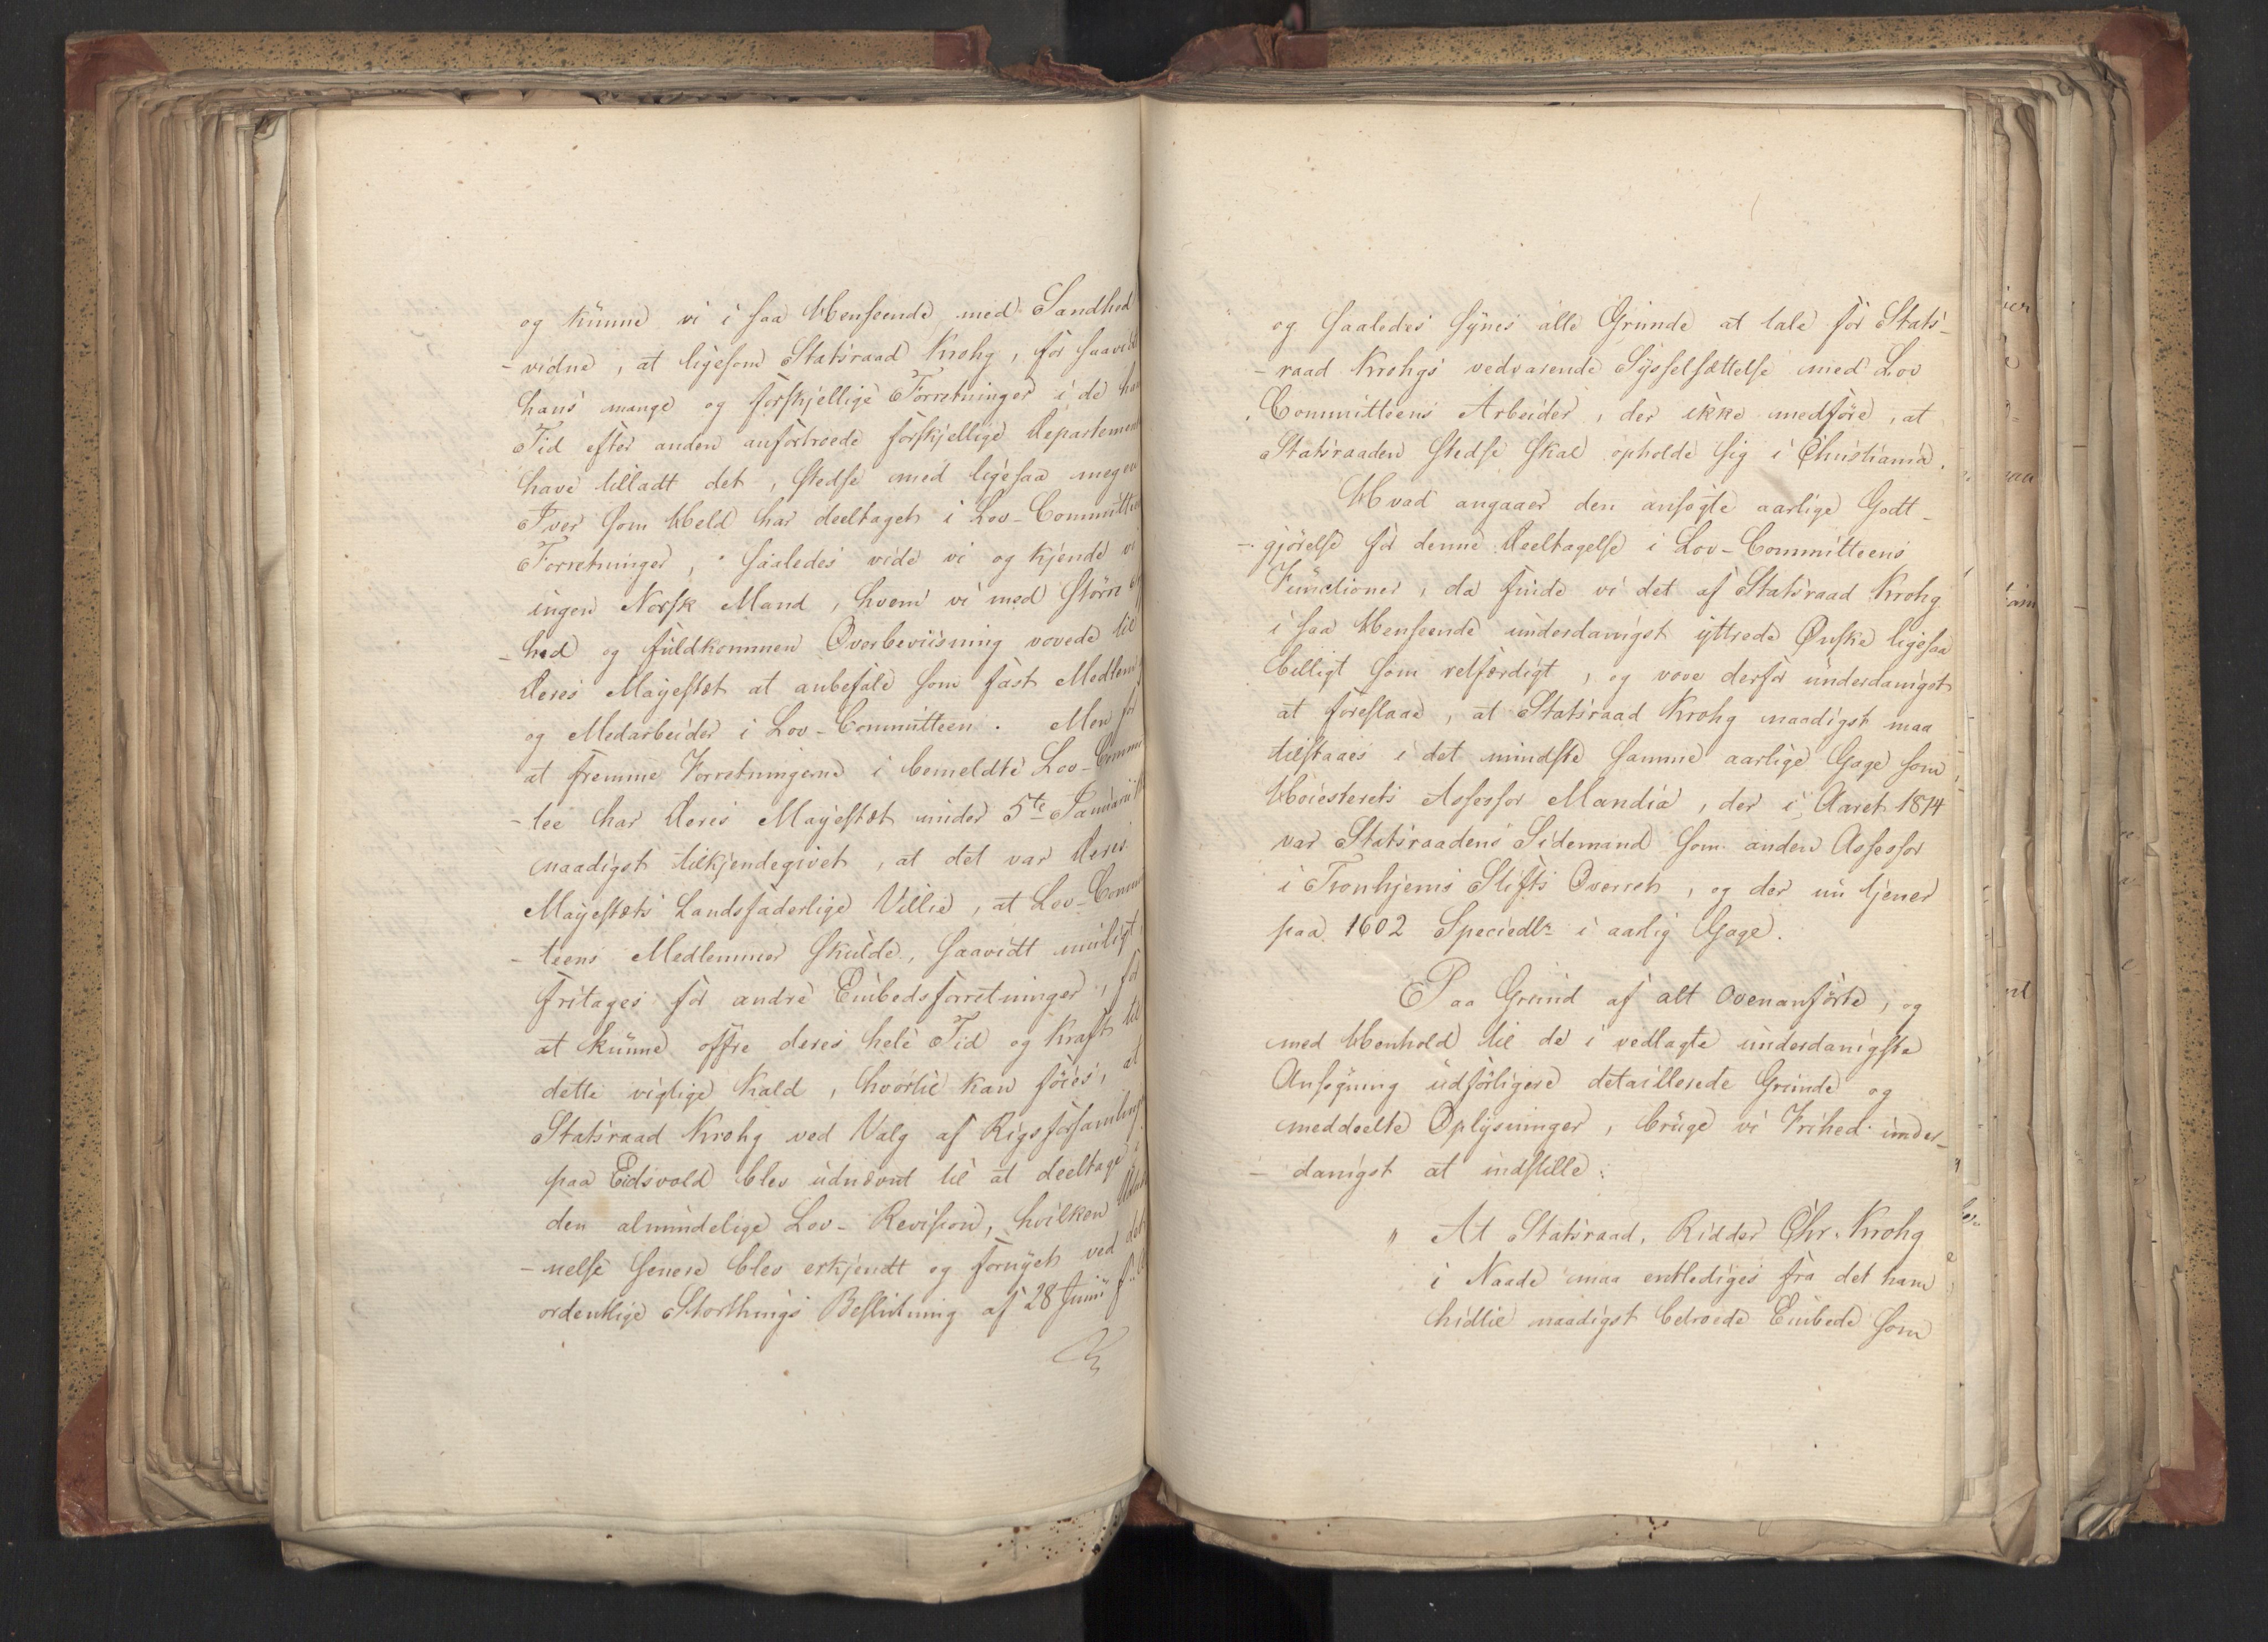 og kunne vi i saa Henseende med Sandhed
- vidne, at ligesom Statsraad Krohg, for saavidt
hans mange og forskjellige Forretninger i de
Tid efter anden anfortroede forskjellige Departemen
have tilladt det, stedse med ligesaa megen
Iver som Held har deeltaget i Lov-Committee
Forretninger, saaledes vide vi og kjende vi
ingen Norsk Mand, hvem vi med større
- hed og fuldkommen Overbeviisning vovede til
Deres Majestæt at anbefale som fast Medlem
og Medarbeider i Lov-Committeen. Men for
at fremme Forretningerne i bemeldte Lov-Commi
- tee har Deres Majestæt under 5te Januarii
naadigst tilkjendegivet, at det var Deres
Majestæts Landsfaderlige Villie, at Lov-Commi
- teens Medlemmer skulde, saavidt muligt,
fritages for andre Embedsforretninger, for
at kunne offre deres hele Tid og Kraft til
dette vigtige Kald, hvortil kan føies, at
Statsraad Krohg ved Valg af Rigsforsamling
paa Eidsvold blev udnævnt til at deeltage i
den almindelige Lov-Revision, hvilken Udnæv
- nelse senere blev erkjendt og fornyet ved det
ordentlige Storthings Beslutning af 28 Junii
og saaledes synes alle Grunde at tale for Stats-
- raad Krohgs vedvarende Sysselsættelse med Lov
Committeens Arbeider, der ikke medføre, at
Statsraaden stedse skal opholde sig i Christiania.
Hvad angaaer den ansøgte aarlige Godt-
- gjørelse for denne Deeltagelse i Lov-Committeens
Functioner, da finde vi det af Statsraad Krohg
i saa Henseende underdanigst yttrede Ønske ligesaa
billigt som retfærdigt, og vove derfor underdanigst
at foreslaae, at Statsraad Krohg naadigst maa
tilstaaes i det mindste samme aarlige Gage som
Høiesterets Assessor Mandix, der i Aaret 1814
var Statsraadens Sidemand som anden Assessor
i Tronhjems Stifts Overret, og der nu tjener
paa 1602 Speciedlr i aarlig Gage.
Paa Grund af alt Ovenanførte, og
med Henhold til de i vedlagte underdanigste
Ansøgning udførligere detaillerede Grunde og
meddeelte Oplysninger, bruge vi Frihed under-
- danigst at indstille:
" At Statsraad, Ridder Chr. Krohg
i Naade maa entlediges fra det ham
hidtil naadigst betroede Embede som